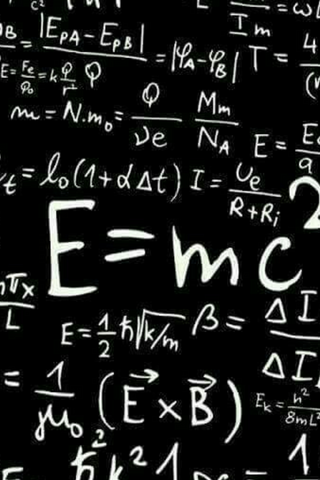 I m
φ_B = |E_PA − E_PB| / Q = |φ_A − φ_B| T = 4
E = F_e/P_0 = k Q/r²
m = N.m_0 = Q/νe Mm/N_A E = E
l_t = l_0(1+αΔt) I = U_e/(R+R_i)
E=mc²
πx/L E=½ħ√k/m β= ΔI/ΔI
= 1/μ_0 (E⃗×B⃗) E_k = h²/8mL²
ħk² 1